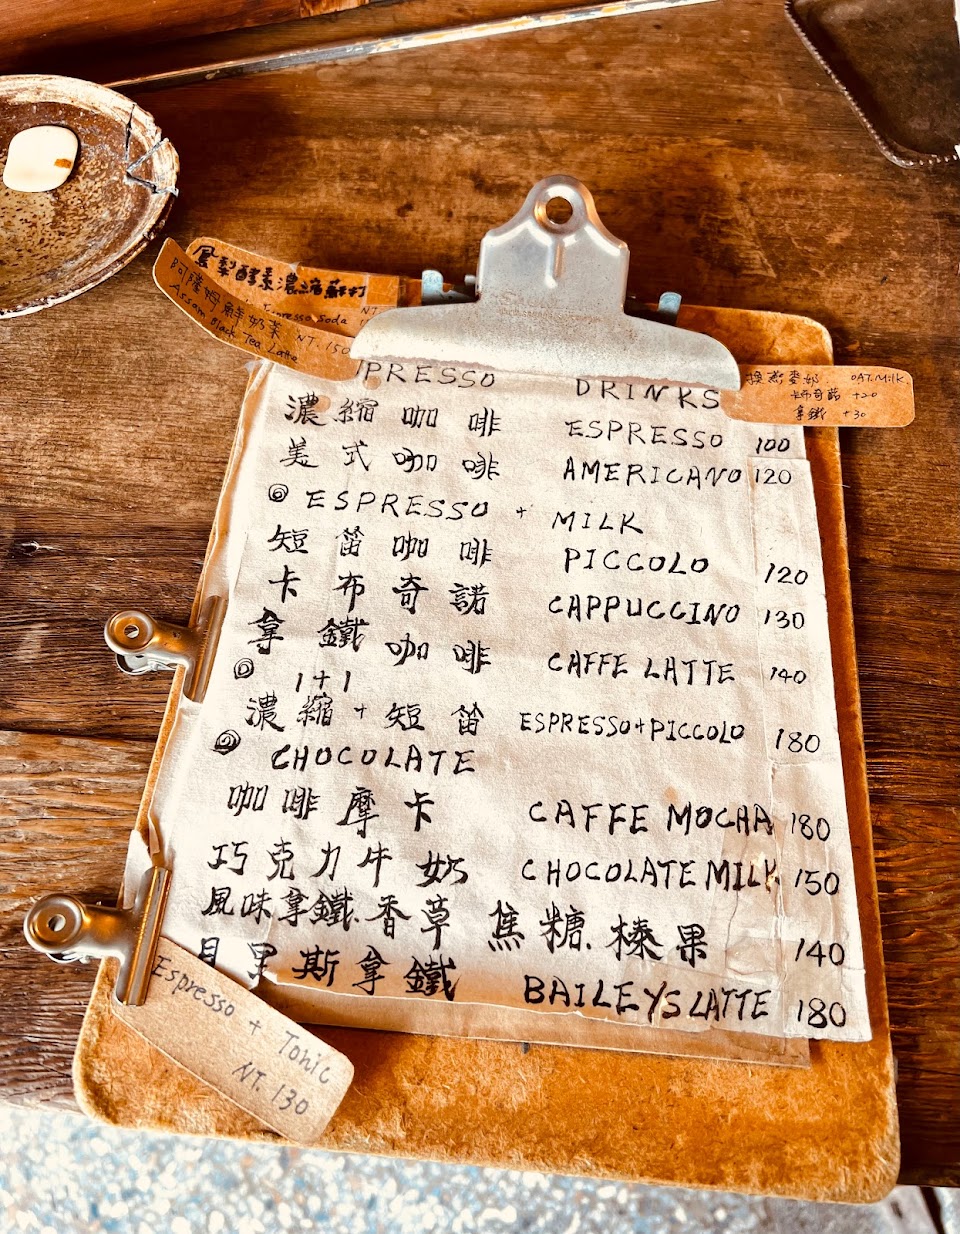 鳳梨酵素濃縮蘇打
Espresso Soda
NT
阿薩姆鮮奶茶 NT.150
Assam Black Tea Latte
換燕麥奶 OAT.MILK
卡布奇諾 +20
拿鐵 +30
PRESSO DRINKS
濃縮咖啡 ESPRESSO 100
美式咖啡 AMERICANO 120
◎ ESPRESSO + MILK
短笛咖啡 PICCOLO 120
卡布奇諾 CAPPUCCINO 130
拿鐵咖啡 CAFFE LATTE 140
◎ 1+1
濃縮+短笛 ESPRESSO+PICCOLO 180
◎ CHOCOLATE
咖啡摩卡 CAFFE MOCHA 180
巧克力牛奶 CHOCOLATE MILK 150
風味拿鐵.香草 焦糖.榛果 140
貝里斯拿鐵 BAILEYS LATTE 180
Espresso + Tonic
NT. 130